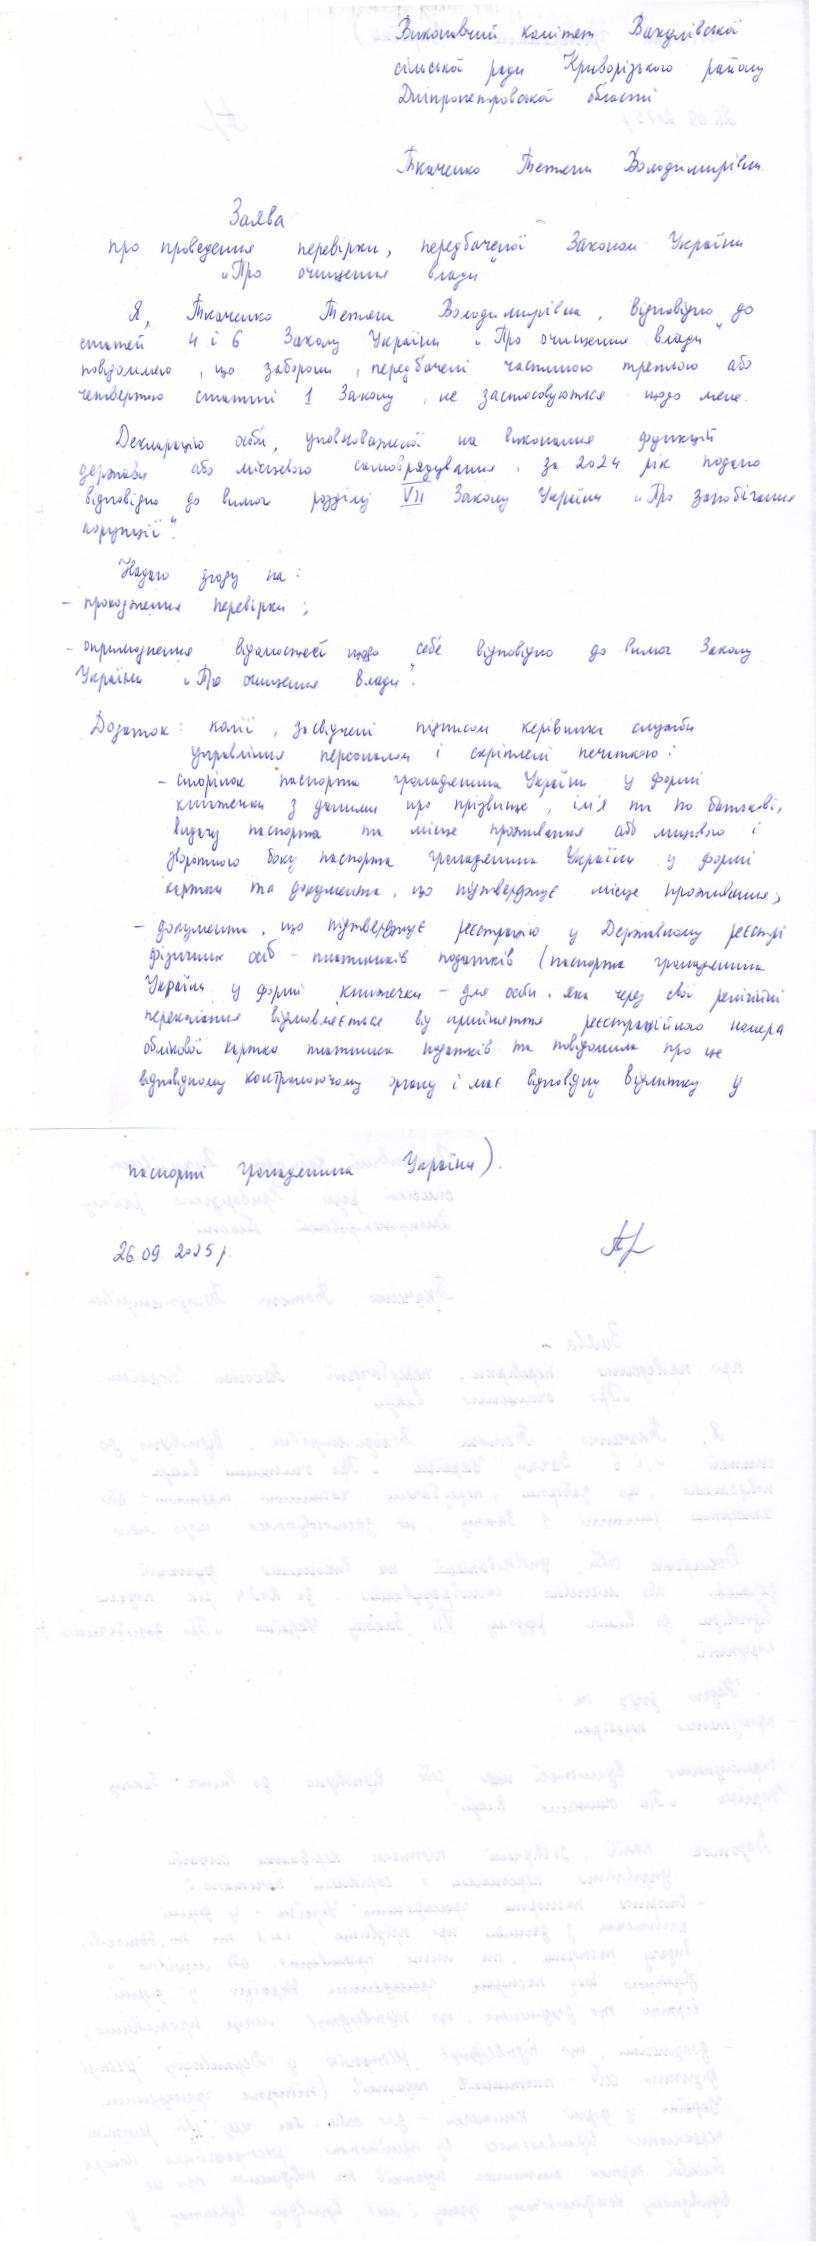 Виконавчий комітет Вакулівської
сільської ради Криворізького району
Дніпропетровської області
Ткаченко Тетяни Володимирівни
Заява
про проведення перевірки, передбаченої Законом України
„Про очищення влади"
Я, Ткаченко Тетяна Володимирівна, відповідно до
статей 4 і 6 Закону України „Про очищення влади"
повідомляю, що заборони, передбачені частиною третьою або
четвертою статті 1 Закону, не застосовуються щодо мене.
Декларацію особи, уповноваженої на виконання функцій
держави або місцевого самоврядування, за 2024 рік подано
відповідно до вимог розділу VII Закону України „Про запобігання
корупції".
Надаю згоду на:
- проходження перевірки;
- оприлюднення відомостей щодо себе відповідно до вимог Закону
України „Про очищення влади".
Додаток: копії, засвідчені підписом керівника служби
управління персоналом і скріплені печаткою:
- сторінок паспорта громадянина України у формі
книжечки з даними про прізвище, ім'я та по батькові,
видачу паспорта та місце проживання або лицьового і
зворотного боку паспорта громадянина України у формі
картки та документа, що підтверджує місце проживання;
- документа, що підтверджує реєстрацію у Державному реєстрі
фізичних осіб - платників податків (паспорта громадянина
України у формі книжечки - для особи, яка через свої релігійні
переконання відмовляється від прийняття реєстраційного номера
облікової картки платника податків та повідомила про це
відповідному контролюючому органу і має відповідну відмітку у
паспорті громадянина України).
26.09.2025 р.